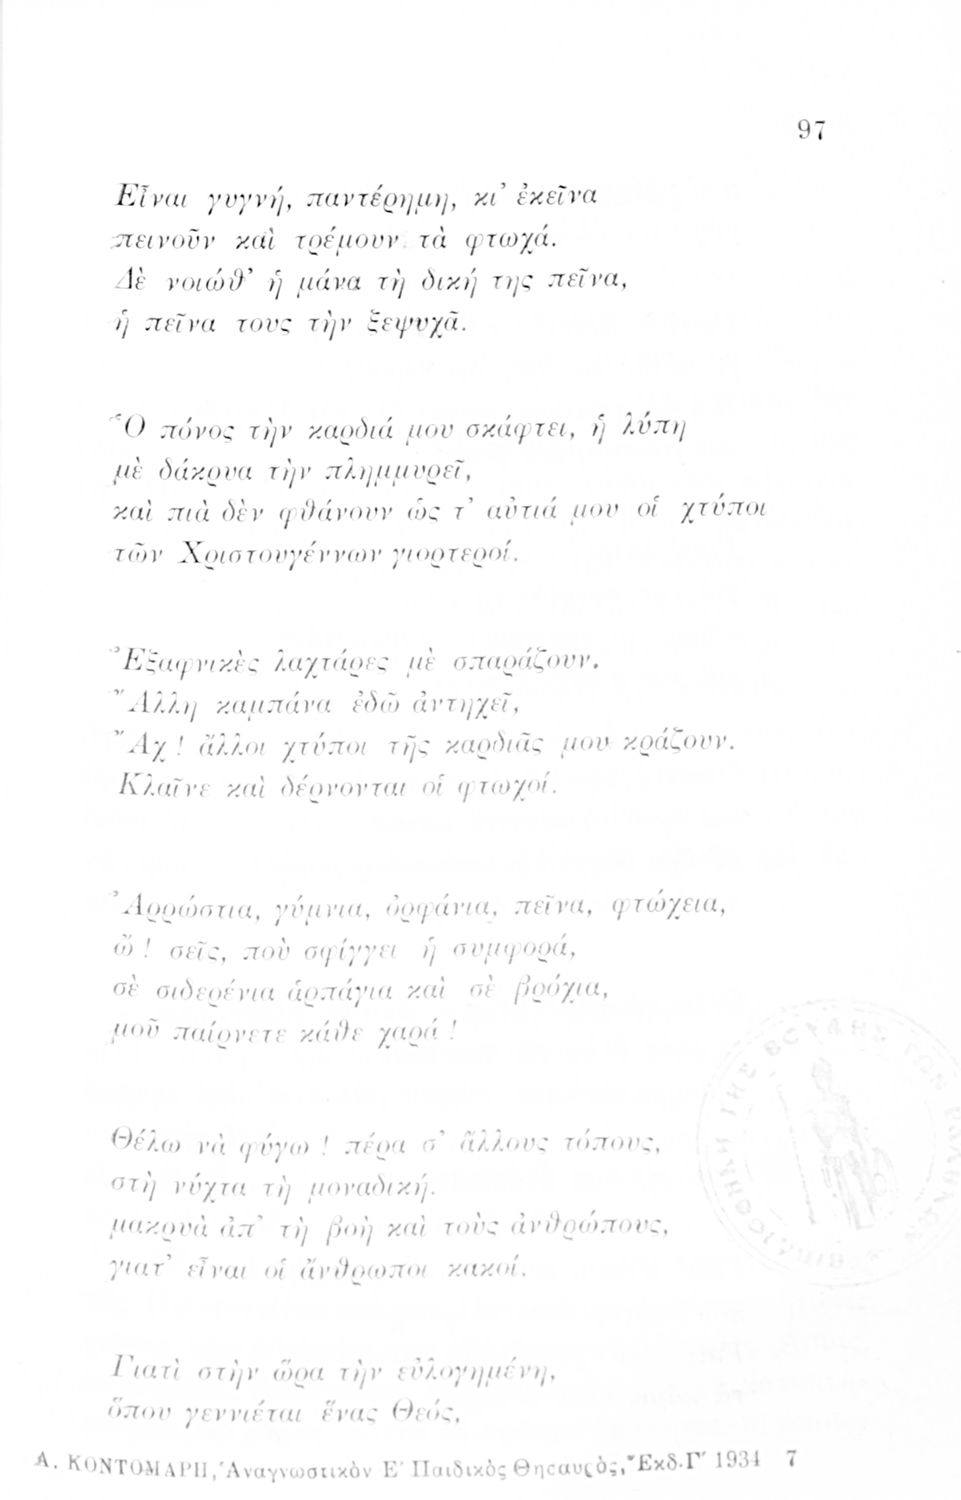 97
Εἶναι γυγνή, παντέρημη, κι’ ἐκεῖνα
πεινοῦν καὶ τρέμουν τὰ φτωχά.
Δὲ νοιώθ’ ἡ μάνα τὴ δική της πεῖνα,
ἡ πεῖνα τους τὴν ξεψυχᾶ.
Ὁ πόνος τὴν καρδιά μου σκάφτει, ἡ λύπη
μὲ δάκρυα τὴν πλημμυρεῖ,
καὶ πιὰ δὲν φθάνουν ὡς τ’ αὐτιά μου οἱ χτύποι
τῶν Χριστουγέννων γιορτεροί.
Ἐξαφνικὲς λαχτάρες μὲ σπαράζουν.
Ἄλλη καμπάνα ἐδῶ ἀντηχεῖ,
Ἄχ ! ἄλλοι χτύποι τῆς καρδιᾶς μου κράζουν.
Κλαῖνε καὶ δέρνονται οἱ φτωχοί.
Ἀρρώστια, γύμνια, ὀρφάνια, πεῖνα, φτώχεια,
ὤ ! σεῖς, ποὺ σφίγγει ἡ συμφορά,
σὲ σιδερένια ἁρπάγια καὶ σὲ βρόχια,
μοῦ παίρνετε κάθε χαρά !
Θέλω νὰ φύγω ! πέρα σ’ ἄλλους τόπους,
στὴ νύχτα τὴ μοναδική.
μακρυὰ ἀπ’ τὴ βοὴ καὶ τοὺς ἀνθρώπους,
γιατ’ εἶναι οἱ ἄνθρωποι κακοί.
Γιατὶ στὴν ὥρα τὴν εὐλογημένη,
ὅπου γεννιέται ἕνας Θεός,
Α. ΚΟΝΤΟΜΑΡΗ, Ἀναγνωστικὸν Ε΄ Παιδικὸς Θησαυρὸς, Ἔκδ. Γ΄ 1934 7